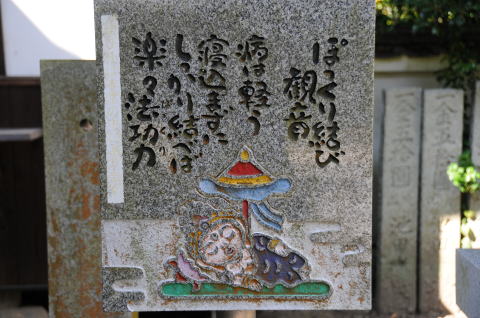 ぽっくり結び
観音
病は軽う
寝込まずに
しっかり結べば
楽々法功力